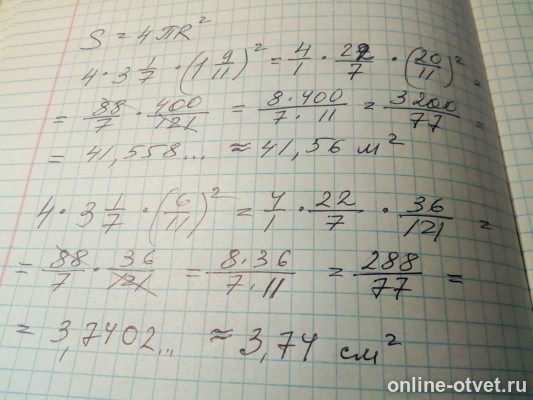 S = 4πR²
4 · 3 1/7 · (1 9/11)² = 4/1 · 22/7 · (20/11)² =
= 88/7 · 400/121 = 8·400/7·11 = 3200/77 =
= 41,558... ≈ 41,56 м²
4 · 3 1/7 · (6/11)² = 4/1 · 22/7 · 36/121 =
= 88/7 · 36/121 = 8·36/7·11 = 288/77 =
= 3,7402... ≈ 3,74 см²
online-otvet.ru